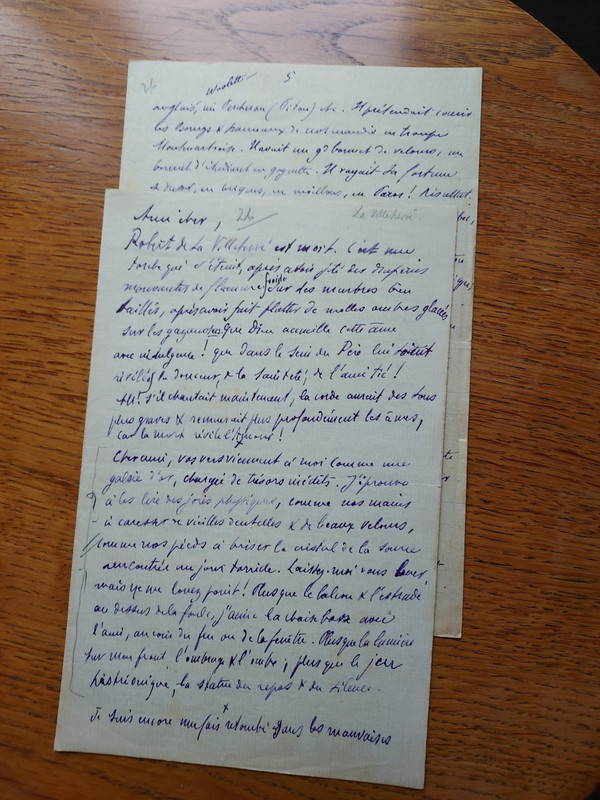 5
anglais, un Percheron (Titan) etc. Il prétendait courir
les Bourgs & hameaux de normandie en troupe
Montmartroise. Il avait un gd bonnet de velours, un
bonnet d'étudiant en goguette. Il voyait la fortune
se dresser, en briques, en meillons, en Paros! Résultat:
Ami cher, 24
La Villehervé.
Robert de La Villehervé est mort. C'est une
torche qui s'éteint, après avoir jeté des draperies
mouvantes de flamme froide sur des marbres bien
taillés, après avoir fait flotter de molles ombres glacées
sur les gazons. Que Dieu accueille cette âme
avec indulgence! que dans le sein du Père lui soient
révélés la douceur, & la sainteté, de l'amitié!
Ah! s'il chantait maintenant, la corde aurait des sons
plus graves & remuerait plus profondément les âmes,
car la mort révèle l'Amour!
Cher ami, vos vers viennent à moi comme une
galère d'or, chargée de trésors inédits. J'éprouve
à les lire des joies physiques, comme nos mains
à caresser de vieilles dentelles & de beaux velours,
comme nos pieds à briser le cristal de la source
rencontrée un jour torride. Laissez-moi vous louer,
mais ne me louez point! Plus que le balcon & l'estrade
au dessus de la foule, j'aime la chaise basse avec
l'ami, au coin du feu ou de la fenêtre. Plus que la lumière
sur mon front, l'ombrage & l'ombre; plus que le jeu
histrionique, la statue du repos & du silence.
Je suis encore une fois retombé dans les mauvaises